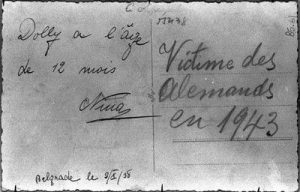 Dolly a l'âge
de 12 mois
Nina
Victime des
Alemands
en 1943
Belgrade le 9/II/38